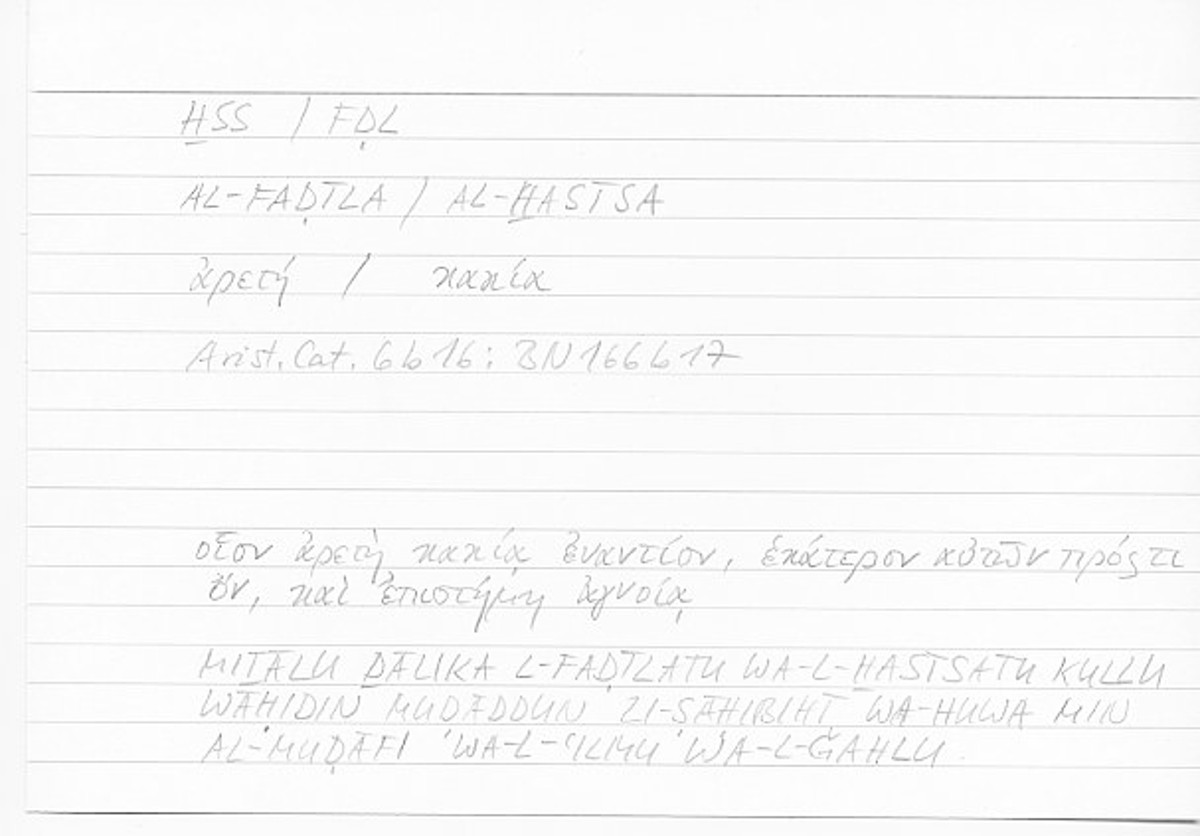 ḪSS / FḌL
AL-FAḌĪLA / AL-ḪASĪSA
ἀρετή / κακία
Arist. Cat. 6b16: BN166b17
οἷον ἀρετὴ κακίᾳ ἐναντίον, ἑκάτερον αὐτῶν πρός τι
ὄν, καὶ ἐπιστήμη ἀγνοίᾳ
MIṮĀLU ḎĀLIKA L-FAḌĪLATU WA-L-ḪASĪSATU KULLU
WĀḤIDIN MUḌĀDDUN LI-ṢĀḤIBIHĪ WA-HUWA MIN
AL-MUḌĀFI WA-L-ʿILMU WA-L-ǦAHLU.